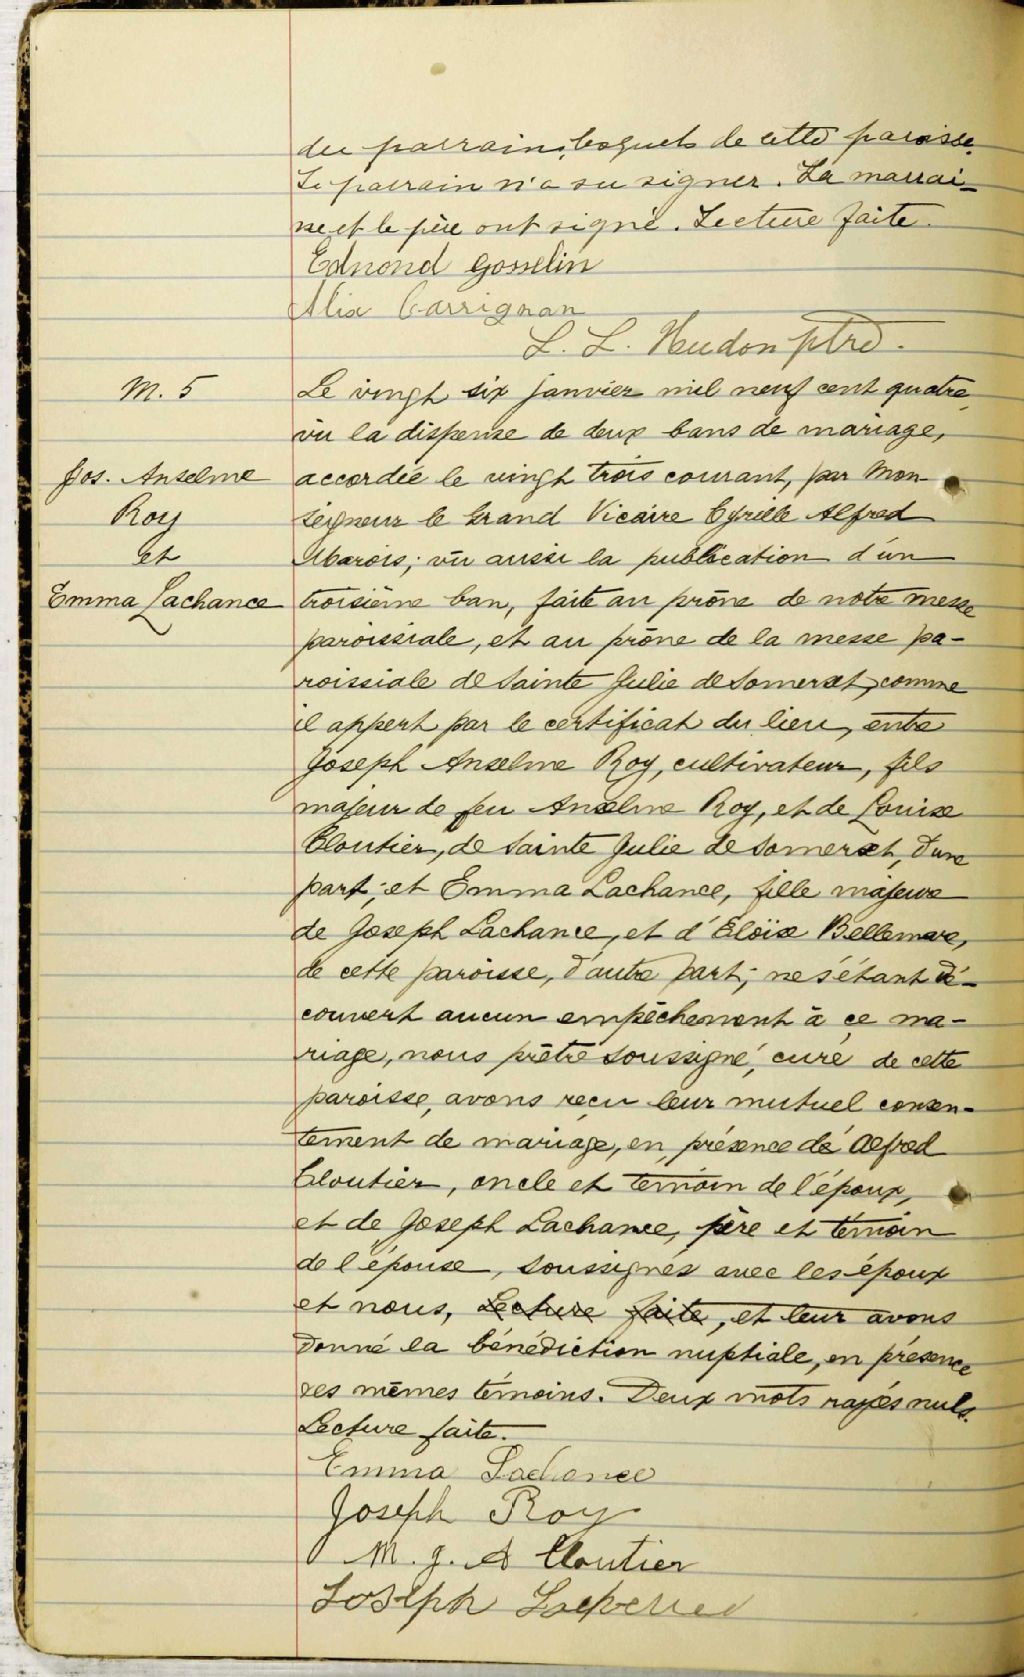 du parrain, lesquels de cette paroisse.
Le parrain n'a su signer. La marrai-
ne et le père ont signé. Lecture faite.
Edmond Gosselin
Alix Carrignan
L. L. Hudon ptre.
M. 5
Le vingt six janvier mil neuf cent quatre,
vu la dispense de deux bans de mariage,
Jos. Anselme
accordée le vingt trois courant, par Mon-
Roy
seigneur le Grand Vicaire Cyrille Alfred
et
Marois; vu aussi la publication d'un
Emma Lachance
troisième ban, faite au prône de notre messe
paroissiale, et au prône de la messe pa-
roissiale de Sainte Julie de Somerset, comme
il appert par le certificat du lieu, entre
Joseph Anselme Roy, cultivateur, fils
majeur de feu Anselme Roy, et de Louise
Cloutier, de Sainte Julie de Somerset, d'une
part; et Emma Lachance, fille majeure
de Joseph Lachance, et d'Eloïse Bellemare,
de cette paroisse, d'autre part; ne s'étant dé-
couvert aucun empêchement à ce ma-
riage, nous prêtre soussigné, curé de cette
paroisse, avons reçu leur mutuel consen-
tement de mariage, en présence de Alfred
Cloutier, oncle et témoin de l'époux,
et de Joseph Lachance, père et témoin
de l'épouse, soussignés avec les époux
et nous, Lecture faite, et leur avons
donné la bénédiction nuptiale, en présence
des mêmes témoins. Deux mots rayés nuls.
Lecture faite.
Emma Lachance
Joseph Roy
M. J. A Cloutier
Joseph